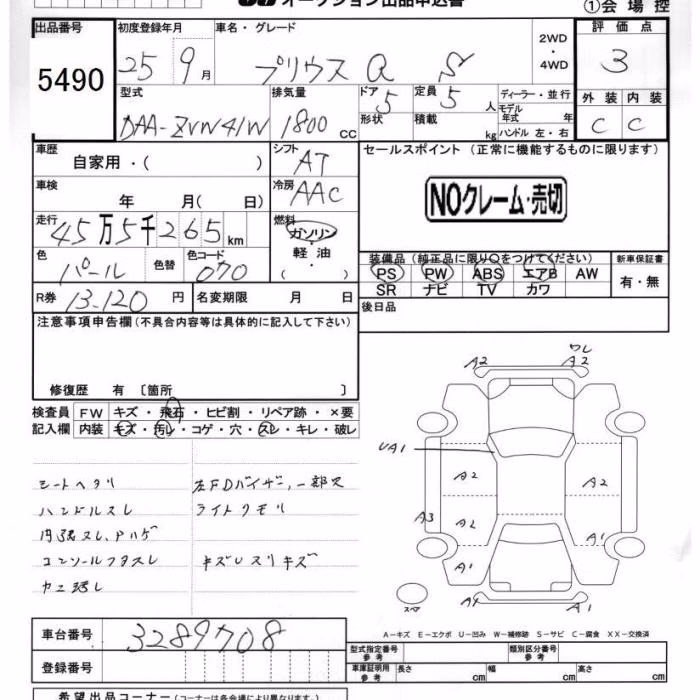 オークション出品申込書
①会場控
出品番号
5490
初度登録年月
25 9月
車名・グレード
プリウスα S
2WD
・
4WD
評価点
3
外装 内装
C C
型式
DAA-ZVW41W
排気量
1800 cc
ドア 5
形状
定員 5 人
積載 kg
ディーラー・並行
モデル年式 年
ハンドル 左・右
車歴
自家用・( )
シフト
AT
車検
年 月( 日)
冷房
AAC
走行
45万5千265km
燃料
ガソリン
・
軽油
・
( )
色
パール
色替
色コード
070
R券 13-120 円
名変期限 月 日
セールスポイント (正常に機能するものに限ります)
NOクレーム・売切
装備品(純正品に限り○をつけてください)
PS PW ABS エアB AW
SR ナビ TV カワ
新車保証書
有・無
後日品
注意事項申告欄(不具合内容等は具体的に記入して下さい)
修復歴 有 〔箇所 〕
検査員記入欄
FW キズ・飛石・ヒビ割・リペア跡・×要
内装 キズ・汚レ・コゲ・穴・スレ・キレ・破レ
シートヘタリ
ハンドルスレ
内張スレ、
コンソールフタスレ
左FDバイザー一部欠
ライトクモリ
キズUスリキズ
A2 ワレ A2
UA1
A2 A2
A3 A2 A1
A1 A1
A4 A1
スペア
A-キズ E-エクボ U-凹み W-補修跡 S-サビ C-腐食 XX-交換済
車台番号
3289708
登録番号
型式指定番号
参考
類別区分番号
参考
車庫証明用
参考
長さ cm
幅 cm
高さ cm
希望出品コーナー(コーナーは各会場により異なります)